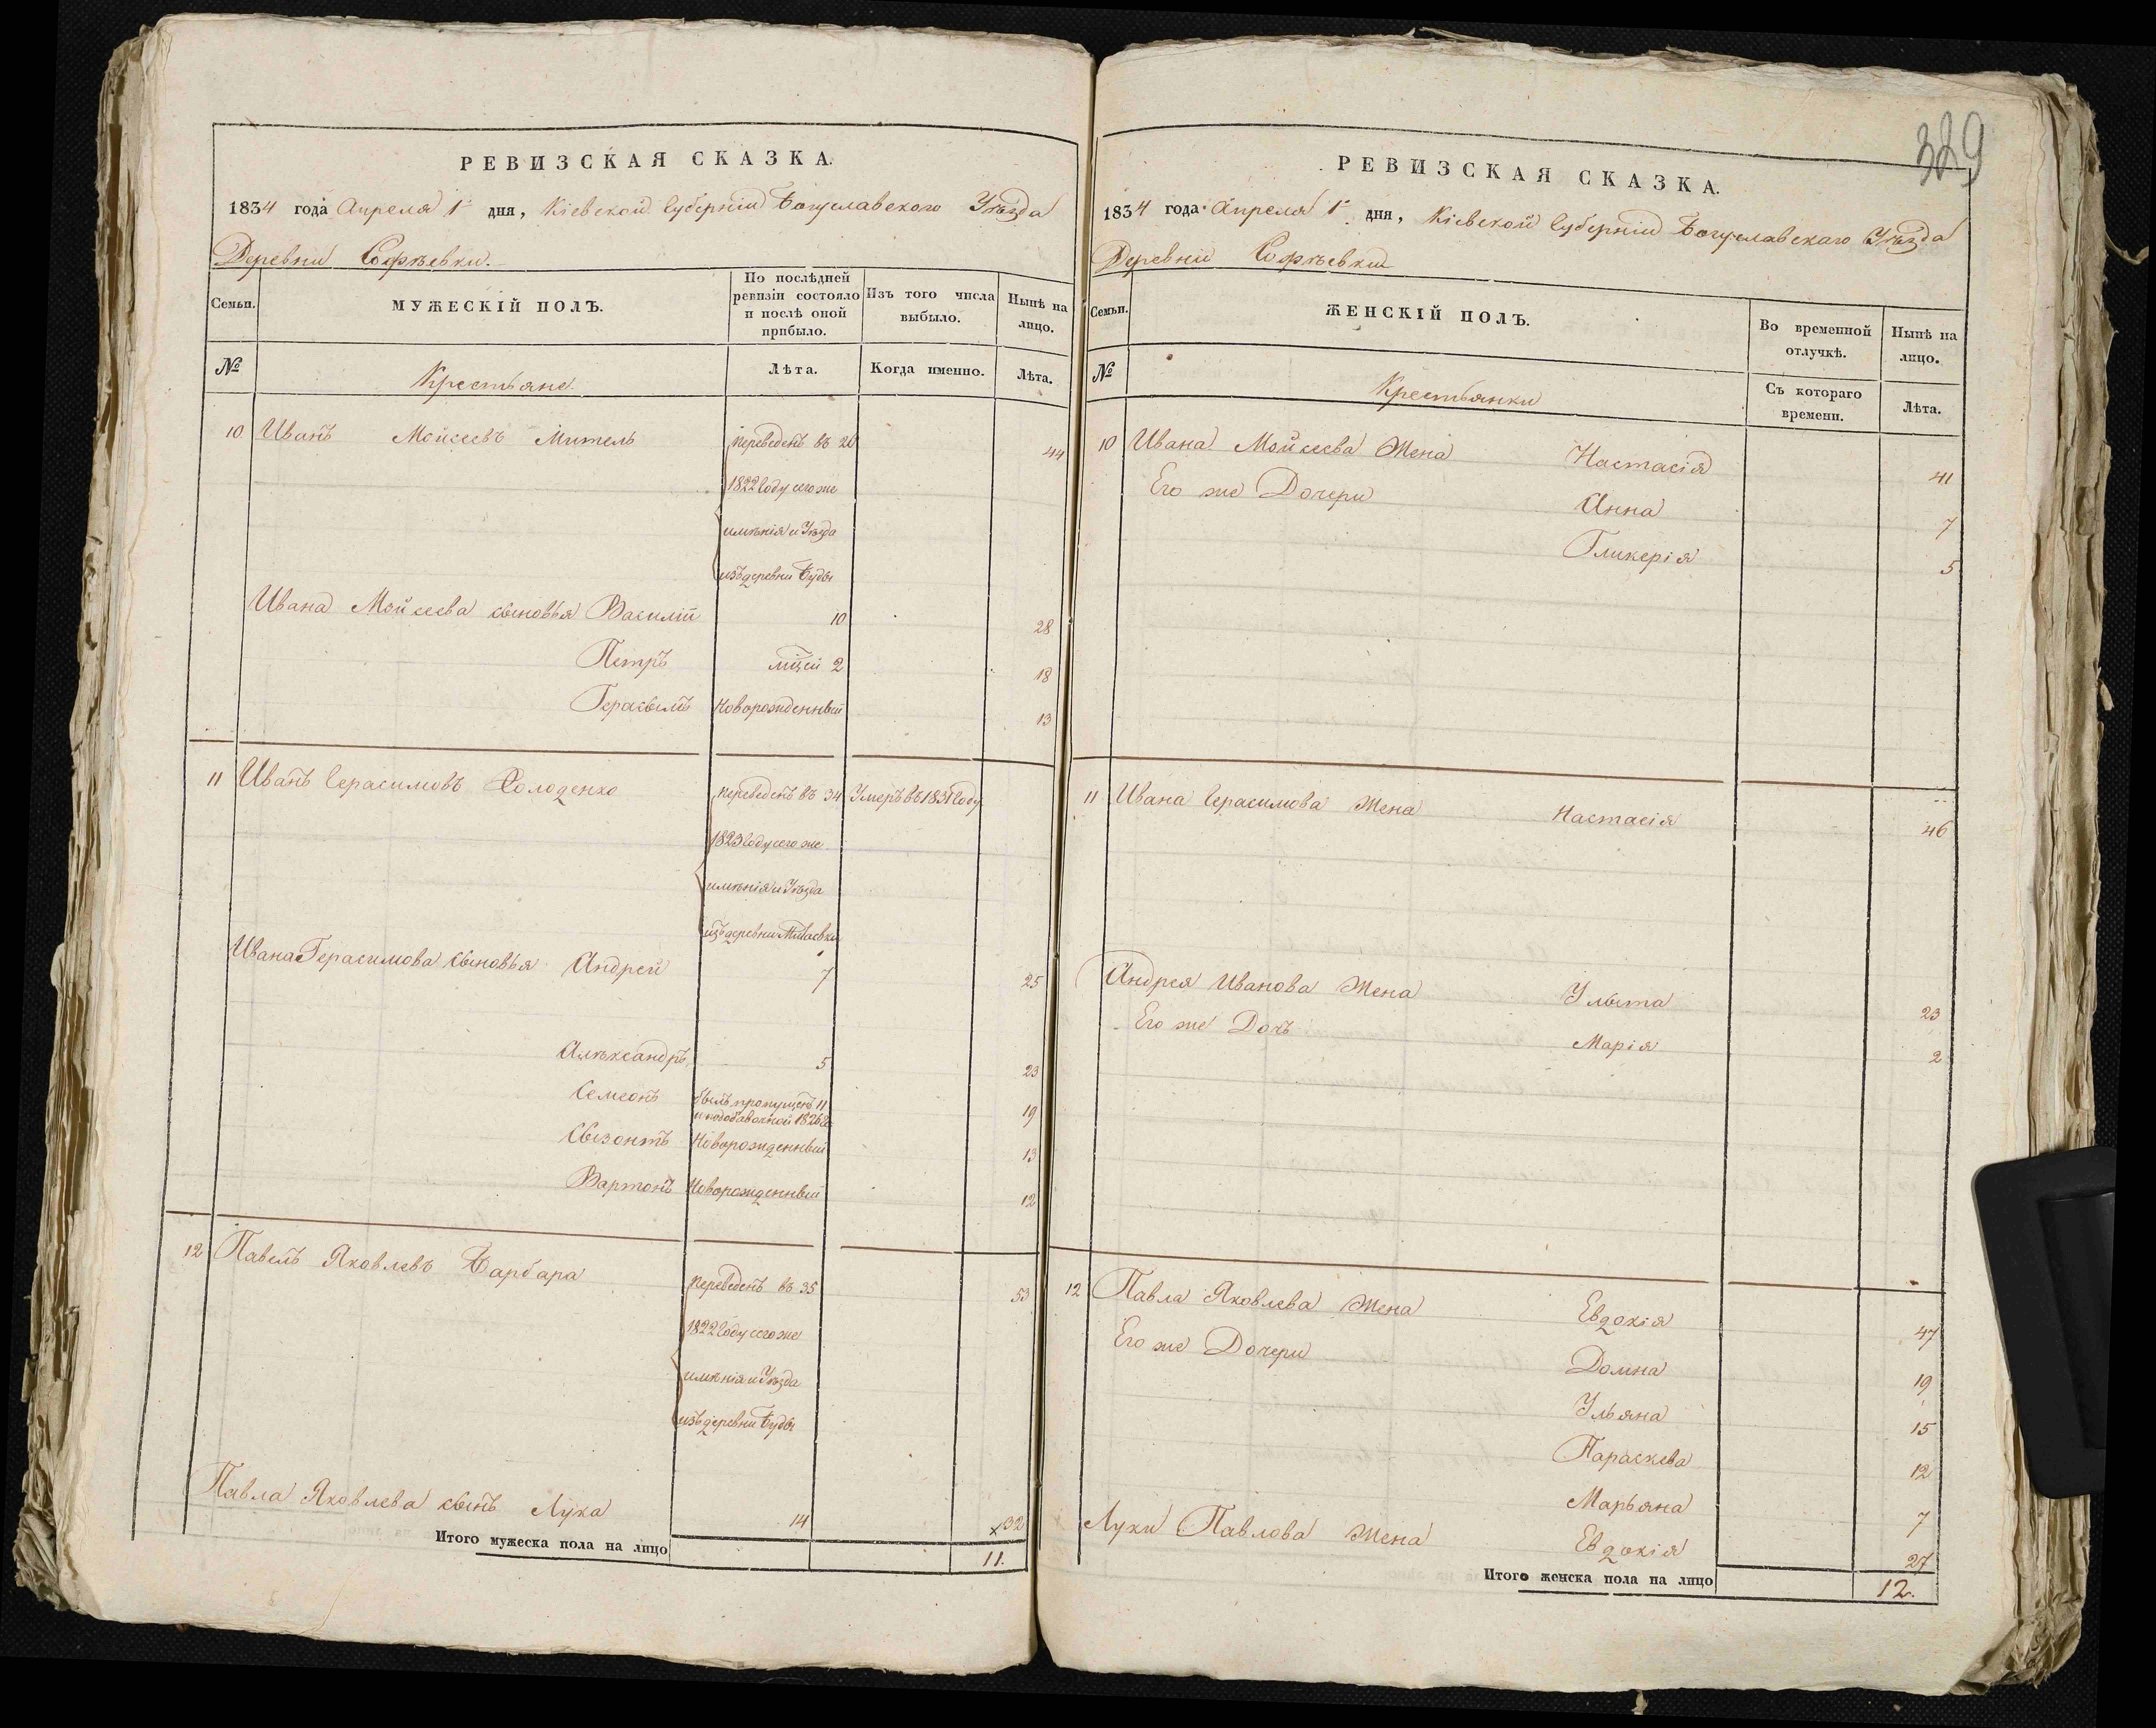 РЕВИЗСКАЯ СКАЗКА.
1834 года Апреля 1 дня, Кіевской Губерніи Богуславского Уѣзда
Деревни Софѣевки.
Семьи.
МУЖЕСКІЙ ПОЛЪ.
По послѣдней ревизіи состояло и послѣ оной прибыло.
Изъ того числа выбыло.
Нынѣ на лицо.
№
Крестьяне.
Лѣта.
Когда именно.
Лѣта.
10 Иванъ Мойсеевъ Митель переведенъ въ 26 44
1822 Году сего же
имѣнія и Уѣзда
изъ деревни Буды
Ивана Мойсеева сыновья Василій 10 28
Петръ 2 18
Герасымъ Новорожденный 13
11 Иванъ Герасимовъ Солоденко переведенъ въ 34 Умеръ въ 1831 Году
1823 Году сего же
имѣнія и Уѣзда
изъ деревни
Ивана Герасимова сыновья Андрей 7 25
Алѣксандръ 5 23
Семеонъ былъ пропущенъ 11 19
Новорожденный 13
Новорожденный 12
12 Павелъ Яковлевъ Барбара переведенъ въ 35 53
1822 Году сего же
имѣнія и Уѣзда
изъ деревни Буды
Павла Яковлева сынъ Лука 14 32
Итого мужеска пола на лицо 11.
329
РЕВИЗСКАЯ СКАЗКА.
1834 года Апреля 1 дня, Кіевской Губерніи Богуславскаго Уѣзда
Деревни Софѣевки
Семьи.
ЖЕНСКІЙ ПОЛЪ.
Во временной отлучкѣ.
Нынѣ на лицо.
№
Крестьянки
Съ котораго времени.
Лѣта.
10 Ивана Мойсеева Жена Настасія 41
Его же Дочери Анна 7
Гликерія 5
11 Ивана Герасимова Жена Настасія 46
Андрея Иванова Жена Улыта 23
Его же Дочь Марія 2
12 Павла Яковлева Жена Евдокія 47
Его же Дочери Домна 19
Ульяна 15
Параскева 12
Марьяна 7
Луки Павлова Жена Евдокія 27
Итого женска пола на лицо 12.